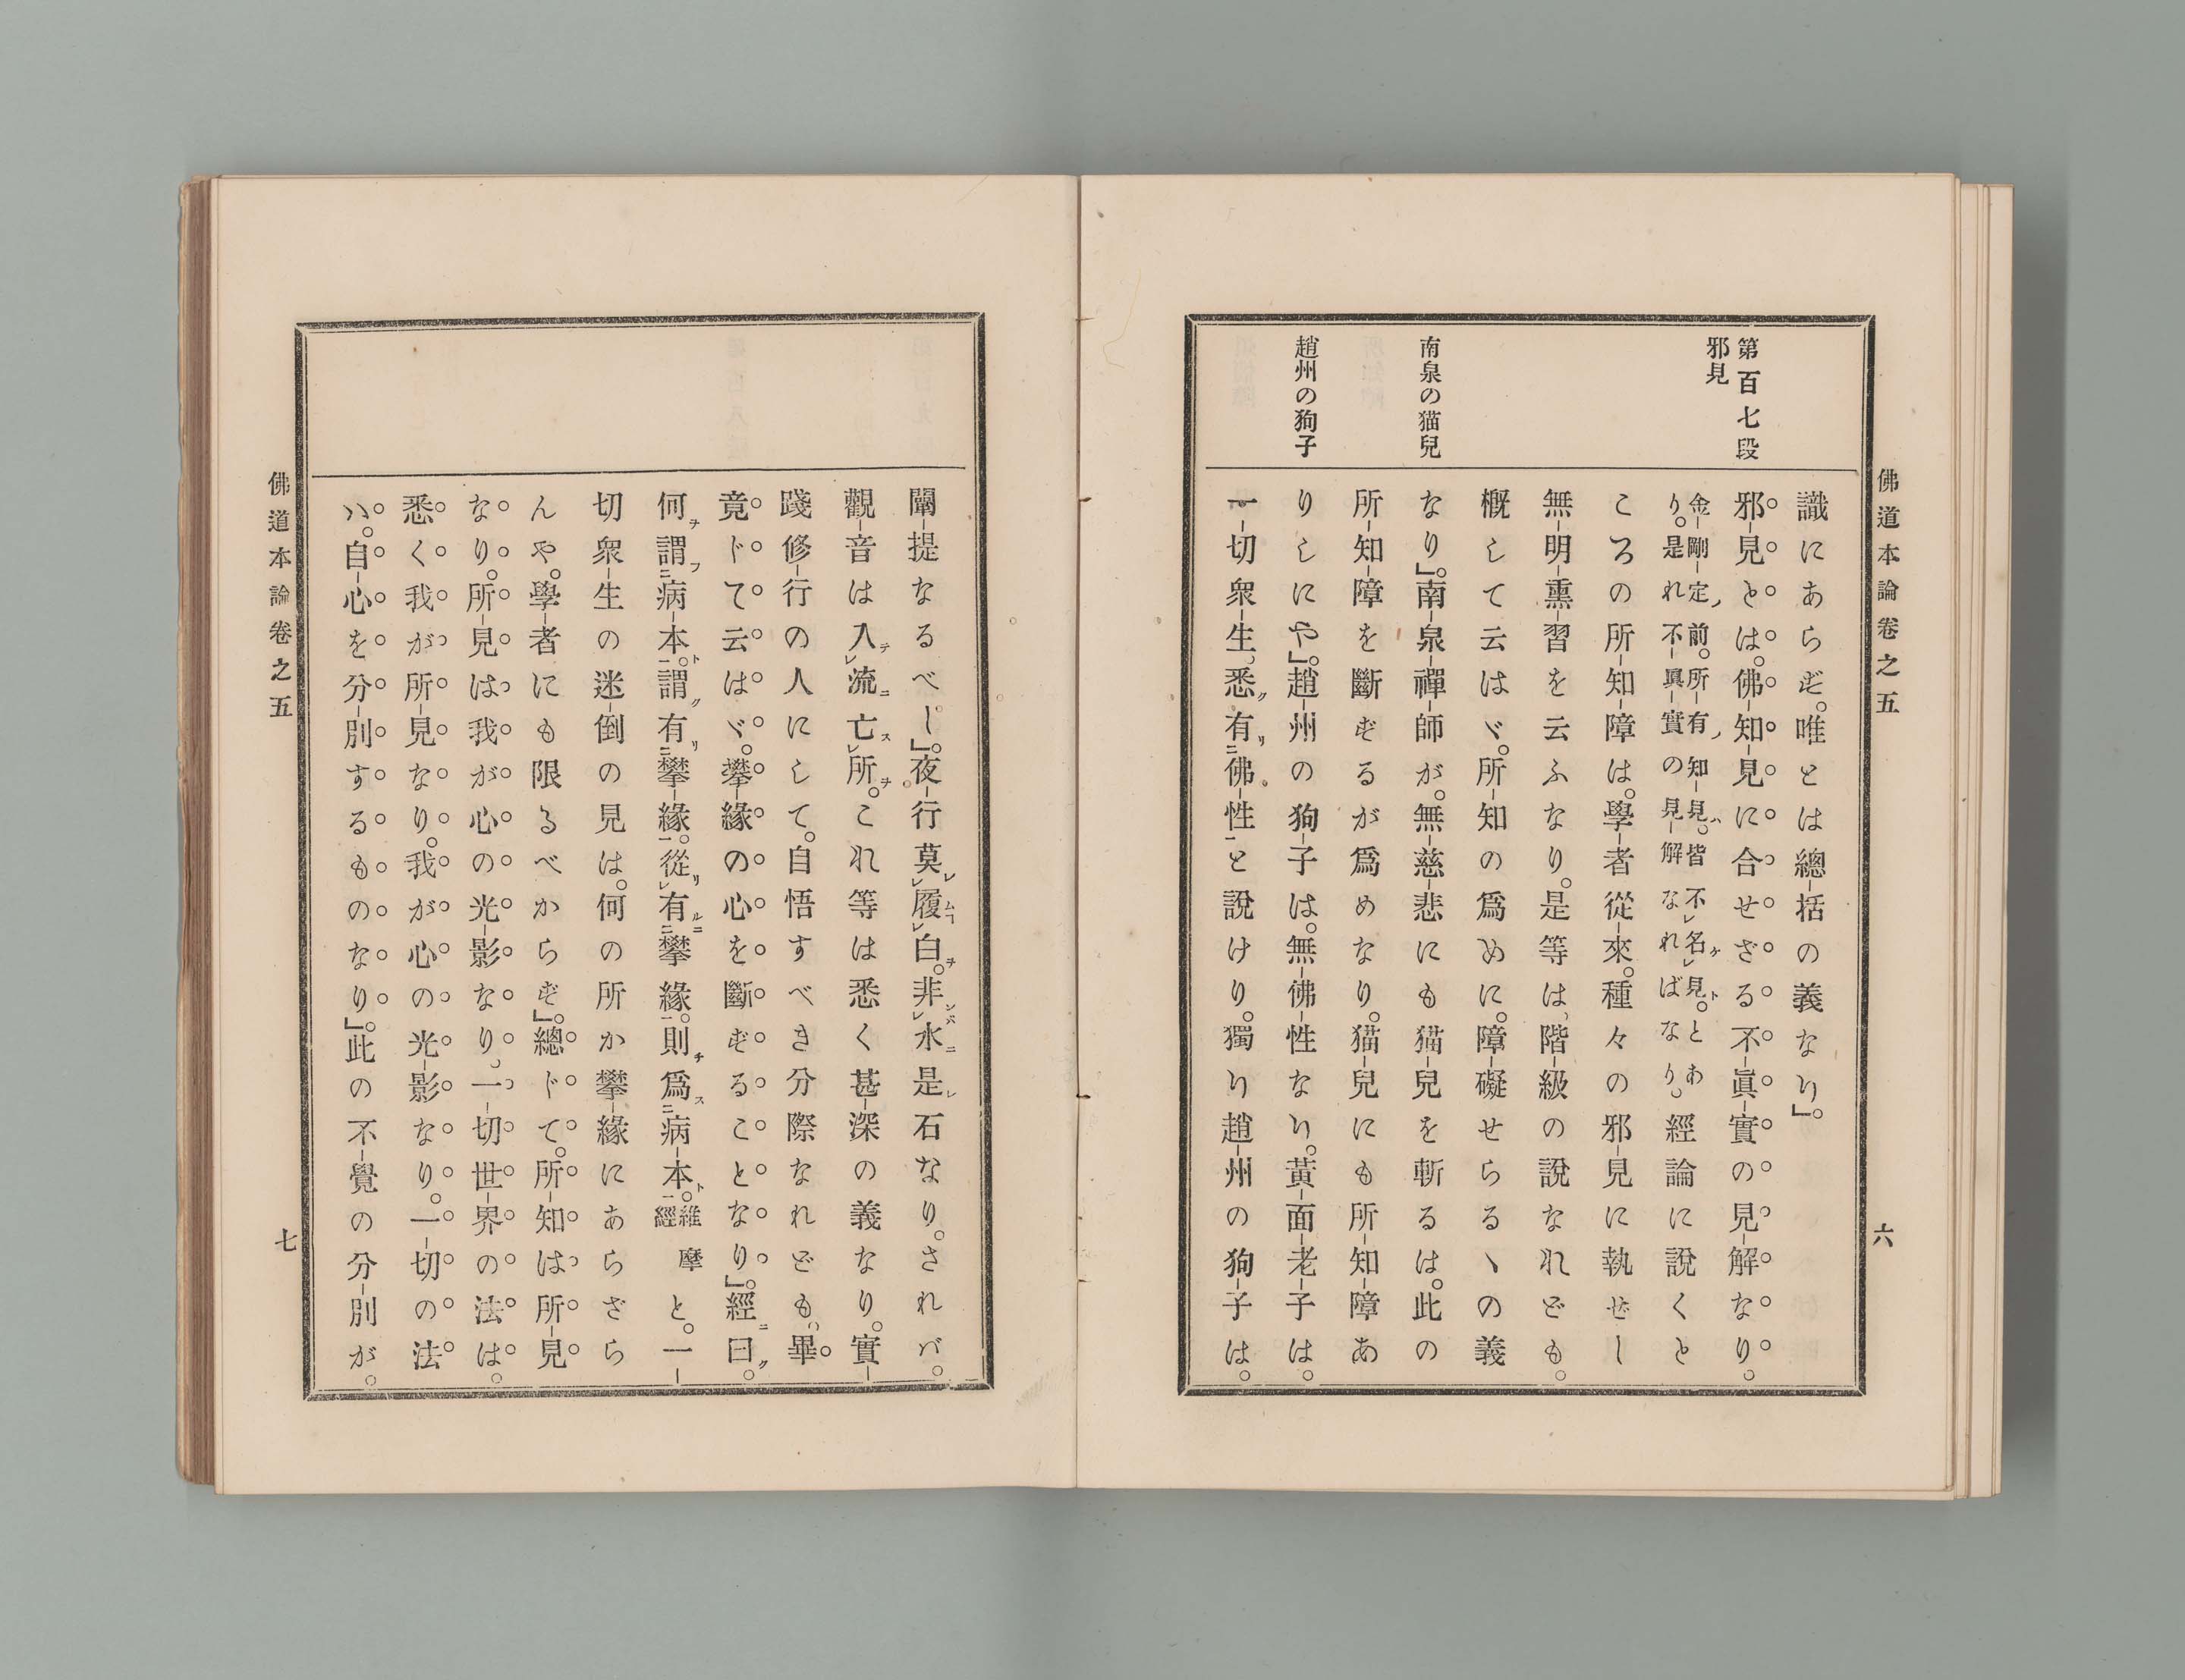 佛道本論卷之五
六
第百七段
邪見
南泉の猫兒
趙州の狗子
識にあらず。唯とは總括の義なり』。
邪見とは。佛知見に合せざる不眞實の見解なり。
金剛定ノ前。所有ノ知見ハ。皆不レ名ケレ見ト。とあ
り。是れ不眞實の見解なればなり。經論に說くと
ころの所知障は。學者從來。種々の邪見に執せし
無明熏習を云ふなり。是等は、階級の說なれども。
槪して云はヾ。所知の爲めに。障礙せらるヽの義
なり』。南泉禪師が。無慈悲にも猫兒を斬るは。此の
所知障を斷ずるが爲めなり。猫兒にも所知障あ
りしにや』。趙州の狗子は。無佛性なり。黃面老子は。
一切衆生、悉ク有リ二佛性一と說けり。獨り趙州の狗子は。
闡提なるべし』。夜行莫レレ履ムコレ白ヲ。非ンバレ水ニ是レ石なり。されバ。
觀音は入テレ流ニ亡スレ所ヲ。これ等は悉く甚深の義なり。實
踐修行の人にして。自悟すべき分際なれども、畢
竟ドて云はヾ。攀緣の心を斷ずることなり』。經ニ曰ク。
何ヲ謂フ二病本ト一。謂ク有リ二攀緣一。從リレ有ルニ二攀緣一。則チ爲ス二病本ト一。維摩經と。一
切衆生の迷倒の見は。何の所か攀緣にあらざら
んや。學者にも限るべからず』。總ドて。所知は所見
なり。所見は我が心の光影なり。一切世界の法は。
悉く我が所見なり。我が心の光影なり。一切の法
ハ。自心を分別するものなり』。此の不覺の分別が。
佛道本論卷之五
七